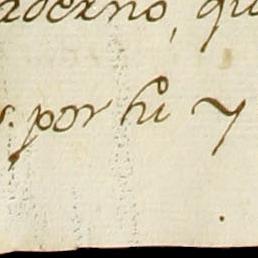 aderno, qu
s. por hũ y